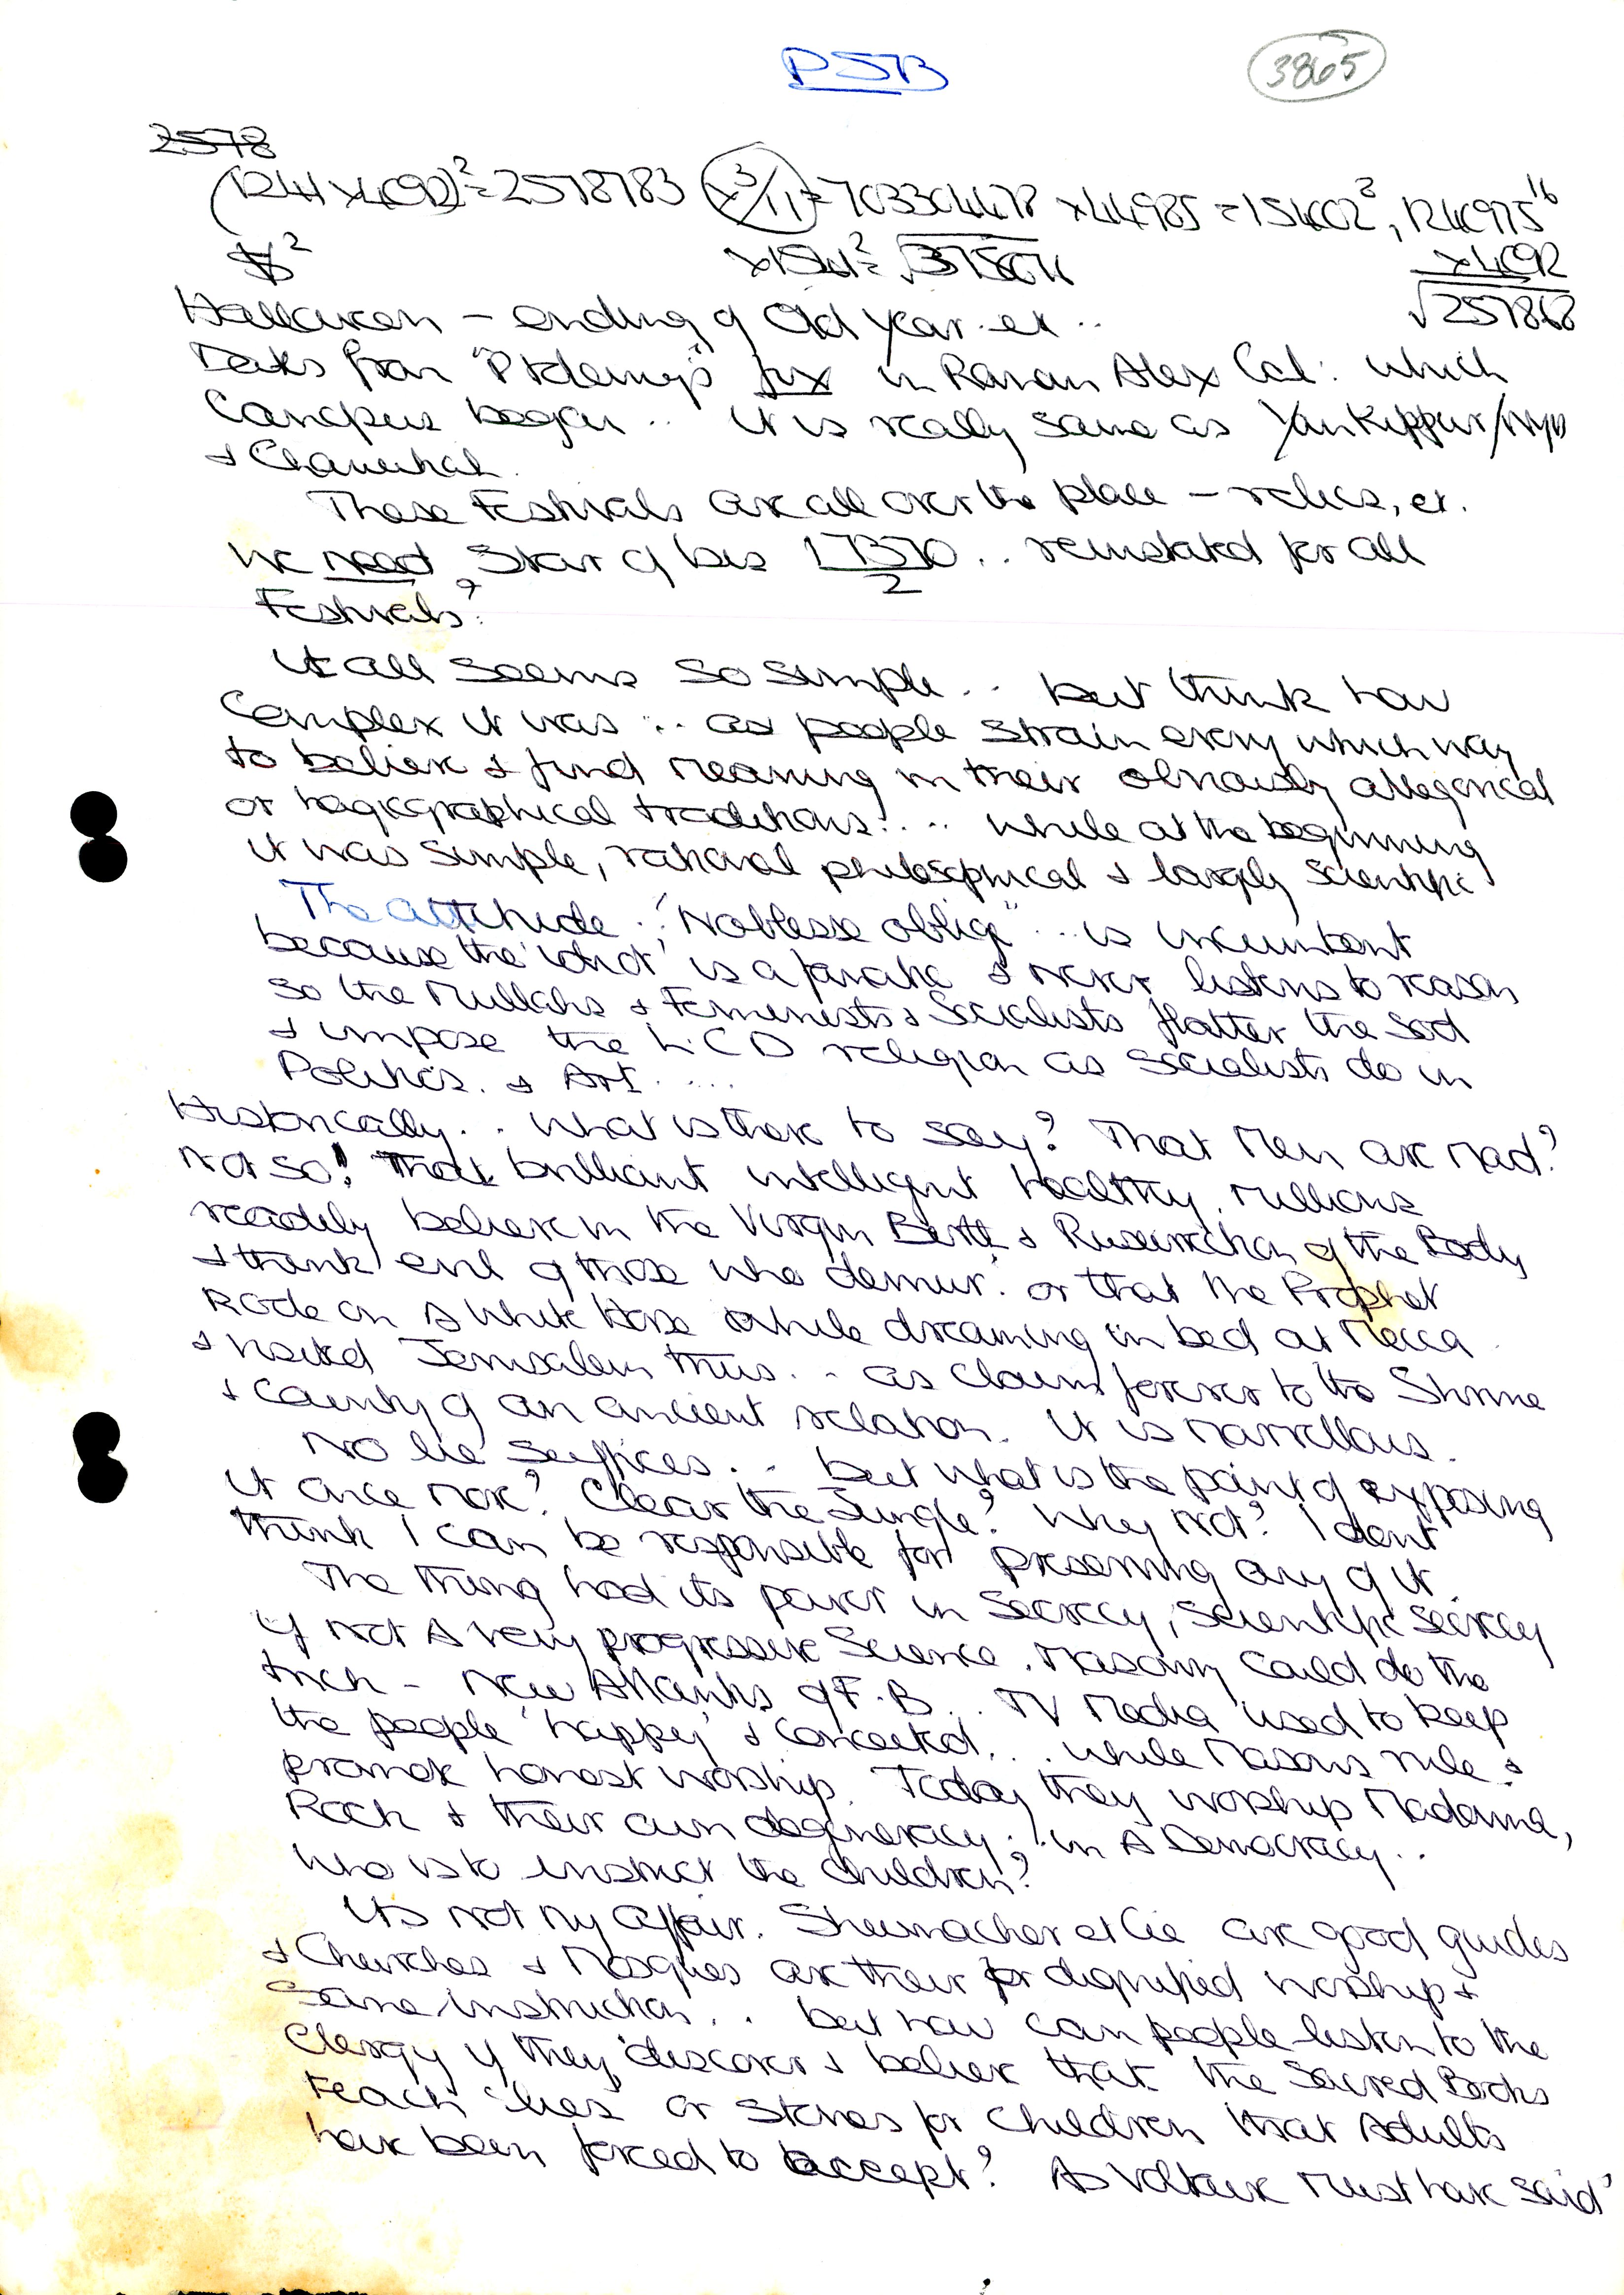 PSB
3865
2578
(1244 x 4092)² = 2578783 (x 3/11) = 703304478 x 44985 = 15402³, 1240975¹⁶
x1521² = √375871
x4092
√257868
Halloween – ending of Old Year. et ..
Dates from "Ptolemy's" fix in Roman Alex Cal: which
Canopus began .. it is really same as Yom Kippur/NYD
& Chanukah.
These Festivals are all over the place – relics, et.
We need Star of Isis 17370/2 .. reinstated for all
Festivals?
It all seems so simple .. but think how
Complex it was .. as people strain every which way
to believe & find meaning in their obviously allegorical
or hagiographical traditions .... while at the beginning
it was simple, rational philosophical & largely scientific
The attitude .. "Noblesse oblige" .. is incumbent
because the 'idiot' is a fanatic & never listens to reason
so the Mullahs & Feminists & Socialists flatter the sod
& impose the L.C.D religion as socialists do in
Politics. & Art .....
Historically .. What is there to say? That Men are Mad?
Not so! That brilliant intelligent healthy millions
readily believe in the Virgin Birth & Ressurrection of the Body
& think evil of those who demur. or that the Prophet
Rode on A White Horse while dreaming in bed at Mecca
& visited Jerusalem thus .. as claim forever to the Shrine
& County of an ancient relation. It is Marvellous.
No lie suffices .. but what is the point of exposing
it once more? Clear the Jungle? Why not? I dont
think I can be responsible for preserving any of it.
The thing had its power in Secrecy, Scientific Secrecy
if not A very progressive Science. Masonry could do the
trick – New Atlantis of F.B .. TV Media used to keep
the people 'happy' & conceited ... while Masons rule &
promote honest worship. Today they worship Madonna,
Rock & their own degeneracy .. in A Democracy ..
Who is to instruct the Children?
Its not my affair. Shumacher et Cie are good guides
& Churches & Mosques are their for dignified worship &
Some instruction .. but how can people listen to the
Clergy if they discover & believe that the Sacred Books
teach 'lies' or stories for children that Adults
have been forced to accept? As Voltaire must have said'